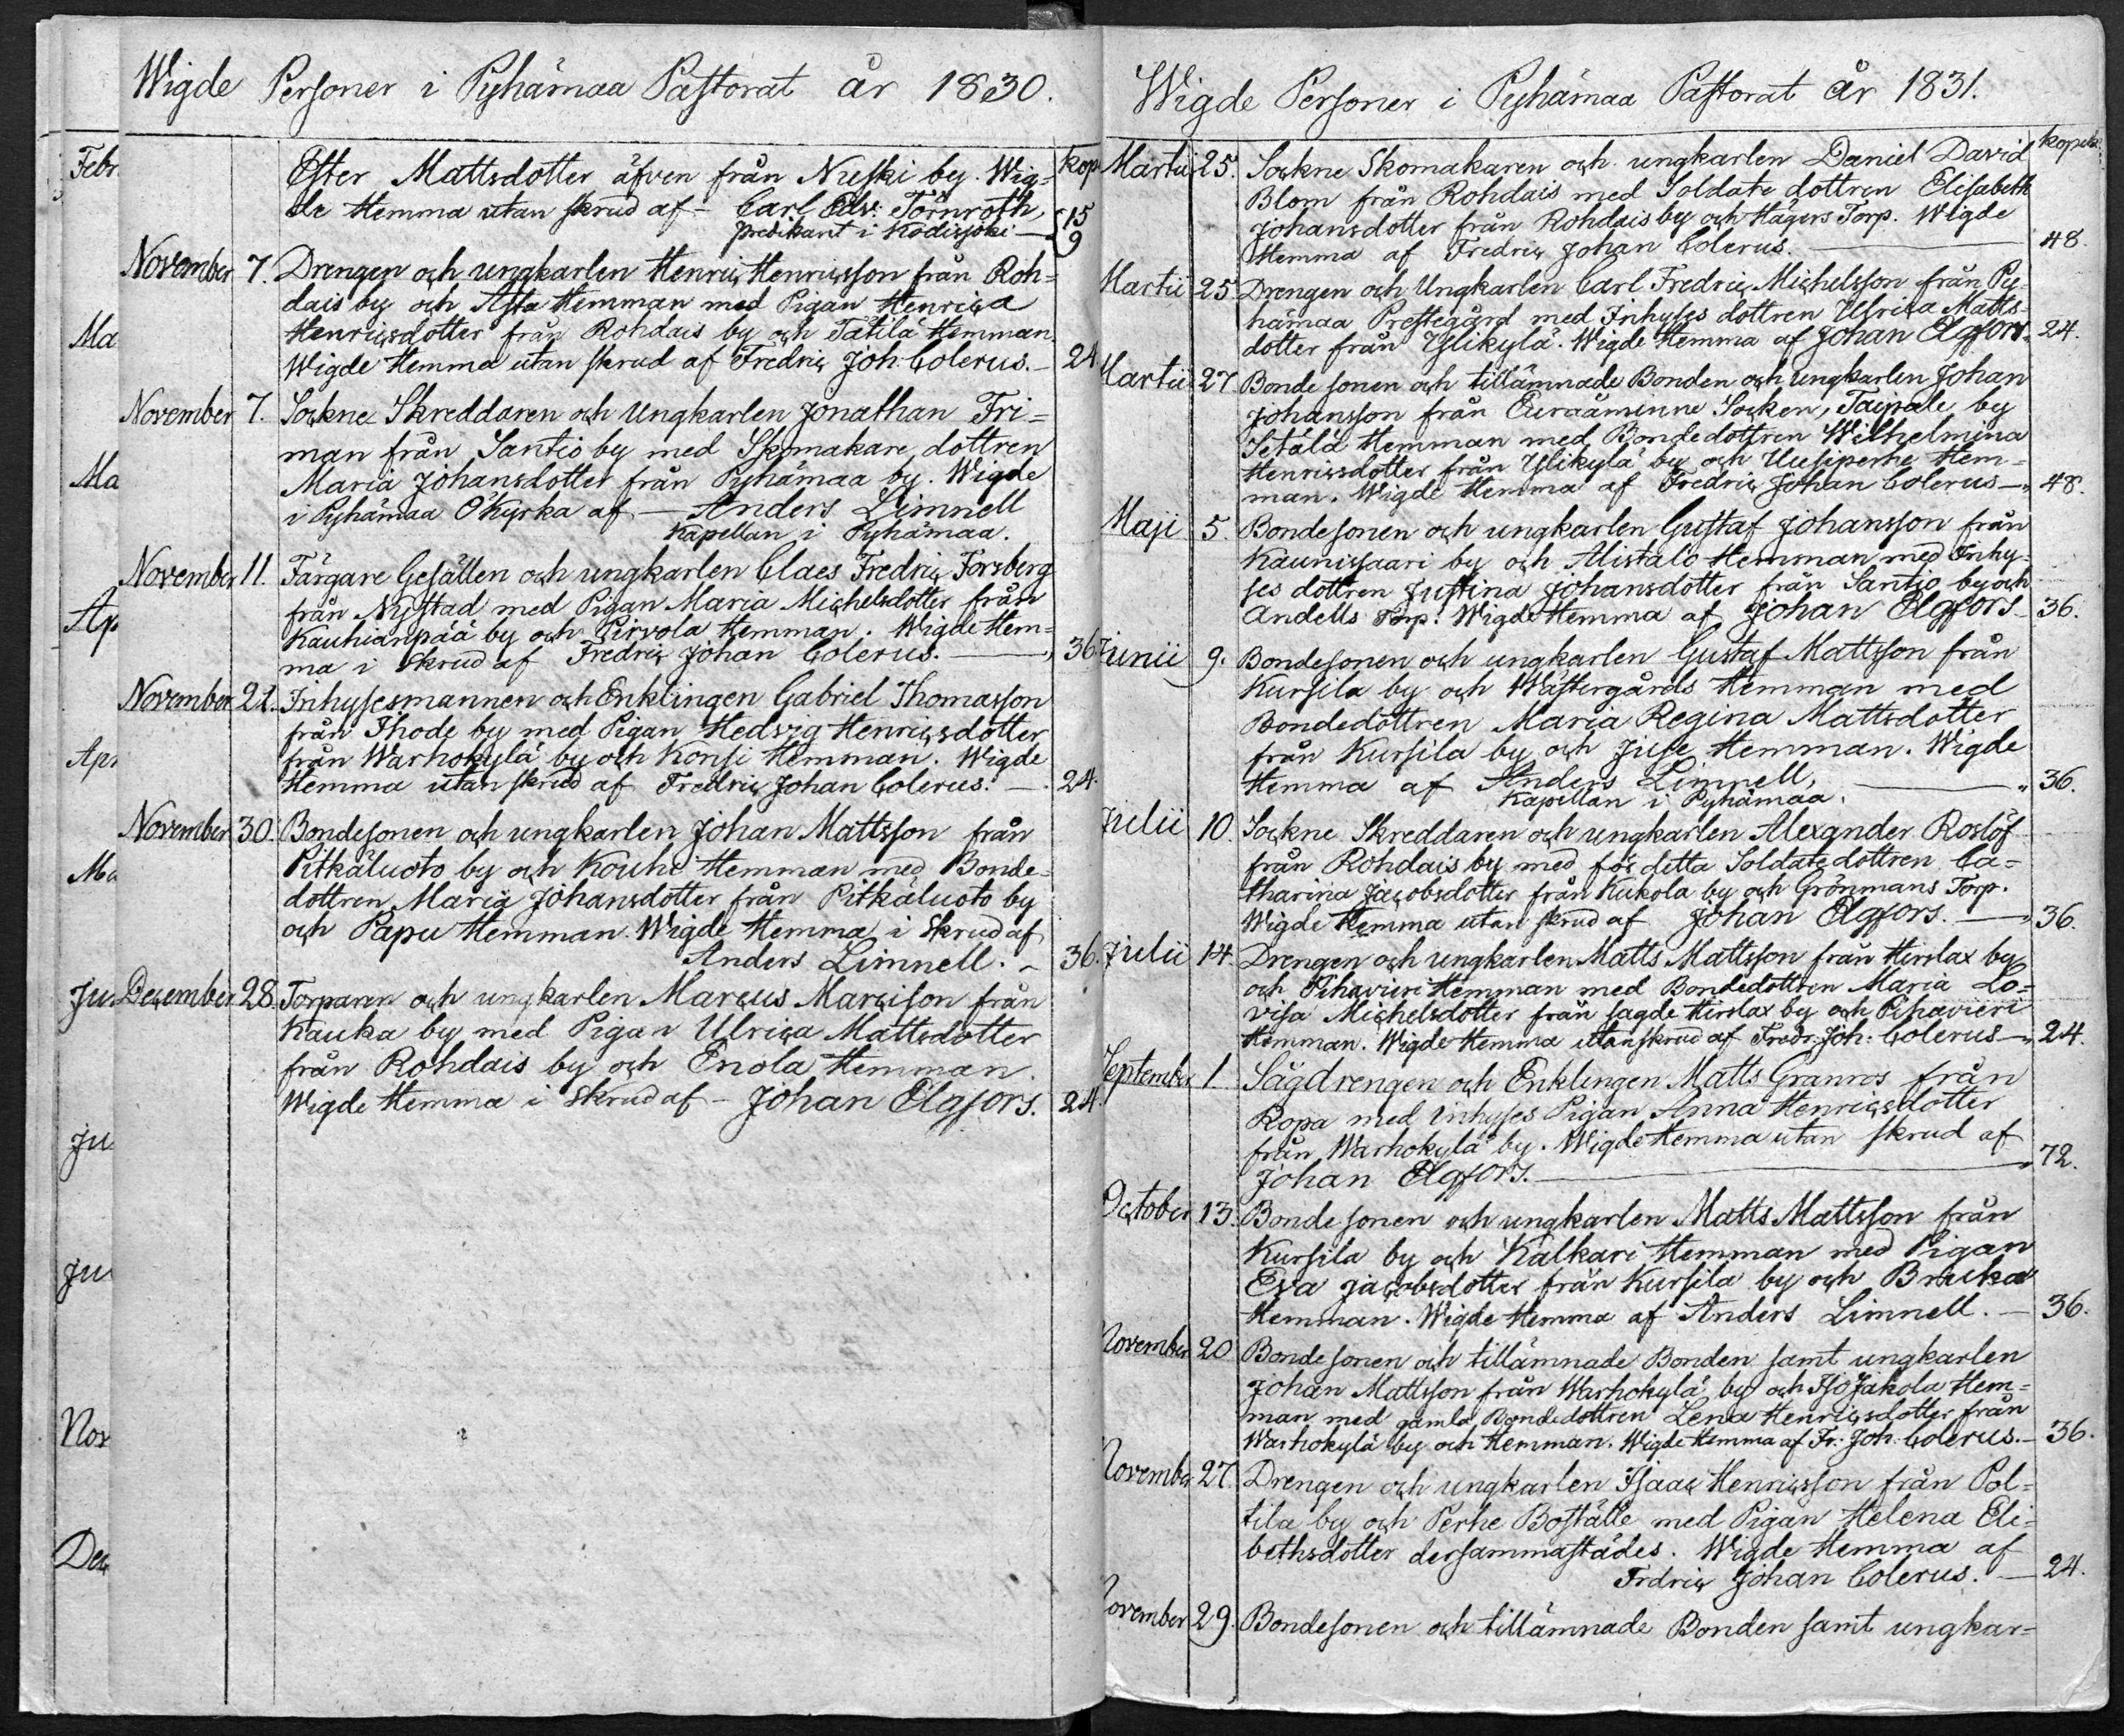 Wigde Personer i Pyhämaa Pastorat år 1830.
kop.
Ester Mattsdotter äfven från Nieski by. Wig=
de Hemma utan skrud af - Carl Edv: Törnroth,
predikant i Kodisjoki — 15
9
November 7. Drengen och ungkarlen Henric Henricsson från Roh=
dais by och Asta Hemman med Pigan Henrica
Henricsdotter från Rohdais by och Tätilä Hemman.
Wigde Hemma utan skrud af Fredric Joh. Colerus. — 24
November 7. Sockne Skreddaren och Ungkarlen Jonathan Fri=
man från Santio by med Skomakare dottren
Maria Johansdotter från Pyhämaa by. Wigde
i Pyhämaa Ö Kyrka af — Anders Limnell
Kapellan i Pyhämaa.
November 11. Färgare Gesällen och ungkarlen Claes Fredric Forsberg
från Nystad med Pigan Maria Michelsdotter från
Kauhianpää by och Pirvola Hemman. Wigde Hem=
ma i skrud af Fredric Johan Colerus. — 36
November 21. Inhysesmannen och Enklingen Gabriel Thomasson
från Ihode by med Pigan Hedvig Henricsdotter
från Warhokylä by och Konsi Hemman. Wigde
Hemma utan skrud af Fredric Johan Colerus. — 24.
November 30. Bondesonen och ungkarlen Johan Mattsson från
Pitkäluoto by och Kouhi Hemman med Bonde=
dottren Maria Johansdotter från Pitkäluoto by
och Papu Hemman. Wigde Hemma i Skrud af
Anders Limnell. - 36.
December 28. Torparen och ungkarlen Marcus Marcison från
Kauka by med Pigan Ulrica Mattsdotter
från Rohdais by och Enola Hemman.
Wigde Hemma i Skrud af - Johan Elgfors. 24.
Febr
Ma
Ma
Ap
Apr
Ma
Ju
Ju
Ju
Nov
Dec
Wigde Personer i Pyhämaa Pastorat år 1831.
kopek:
Martii 25. Sockne Skomakaren och ungkarlen Daniel David
Blom från Rohdais med Soldate dottren Elisabeth
Johansdotter från Rohdais by och Hägers Torp. Wigde
Hemma af Fredric Johan Colerus. — 48.
Martii 25. Drengen och Ungkarlen Carl Fredric Michelsson från Py-
hämaa Prestegård med Inhyses dottren Ulrica Matts=
dotter från Ylikylä. Wigde Hemma af Johan Elgfors. 24.
Martii 27. Bonde sonen och tillämnade Bonden och ungkarlen Johan
Johansson från Euraäminne Socken, Taipale by
Setälä Hemman med Bondedottren Wilhelmina
Henricsdotter från Ylikylä by och Uusiperhe Hem=
man. Wigde Hemma af Fredric Johan Colerus — 48.
Maji 5. Bondesonen och ungkarlen Gustaf Johansson från
Kaunissaari by och Alistalo Hemman med Inhy=
ses dottren Justina Johansdotter från Santio by och
Andells Torp. Wigde Hemma af Johan Elgfors — 36.
Junii 9. Bondesonen och ungkarlen Gustaf Mattsson från
Kursila by och Wästergårds Hemman med
Bondedottren Maria Regina Mattsdotter
från Kursila by och Juse Hemman. Wigde
Hemma af Anders Limnell, — 36.
Kapellan i Pyhämaa.
Julii 10. Sockne Skreddaren och ungkarlen Alexander Roslöf
från Rohdais by med för detta Soldate dottren Ca=
tharina Jacobsdotter från Kukola by och Grönmans Torp.
Wigde Hemma utan skrud af Johan Elgfors. — 36.
Julii 14. Drengen och ungkarlen Matts Mattsson från Hirslax by
och Pihavieri Hemman med Bondedottren Maria Lo=
visa Michelsdotter från sagde Hirslax by och Pihavieri
Hemman. Wigde Hemma utan skrud af Fredr. Joh: Colerus — 24.
September 1. Sågdrengen och Enklingen Matts Granros från
Ropa med Inhyses Pigan Anna Henricsdotter
från Warhokylä by. Wigde Hemma utan skrud af
Johan Elgfors. — 72.
October 13. Bonde sonen och ungkarlen Matts Mattsson från
Kursila by och Kalkari Hemman med Pigan
Eva Jacobsdotter från Kursila by och Bruka
Hemman. Wigde Hemma af Anders Limnell. — 36.
November 20. Bondesonen och tillämnade Bonden samt ungkarlen
Johan Mattsson från Warhokylä by och Iso Jakola Hem=
man med gamla Bondedottren Lena Henricsdotter från
Warhokylä by och Hemman. Wigde Hemma af Fr. Joh. Colerus. — 36.
November 27. Drengen och ungkarlen Isaac Henricsson från Pol=
tila by och Perhe Boställe med Pigan Helena Eli=
bethsdotter dersammastädes. Wigde Hemma af
Frdric Johan Colerus. — 24.
November 29. Bondesonen och tillämnade Bonden samt ungkar=